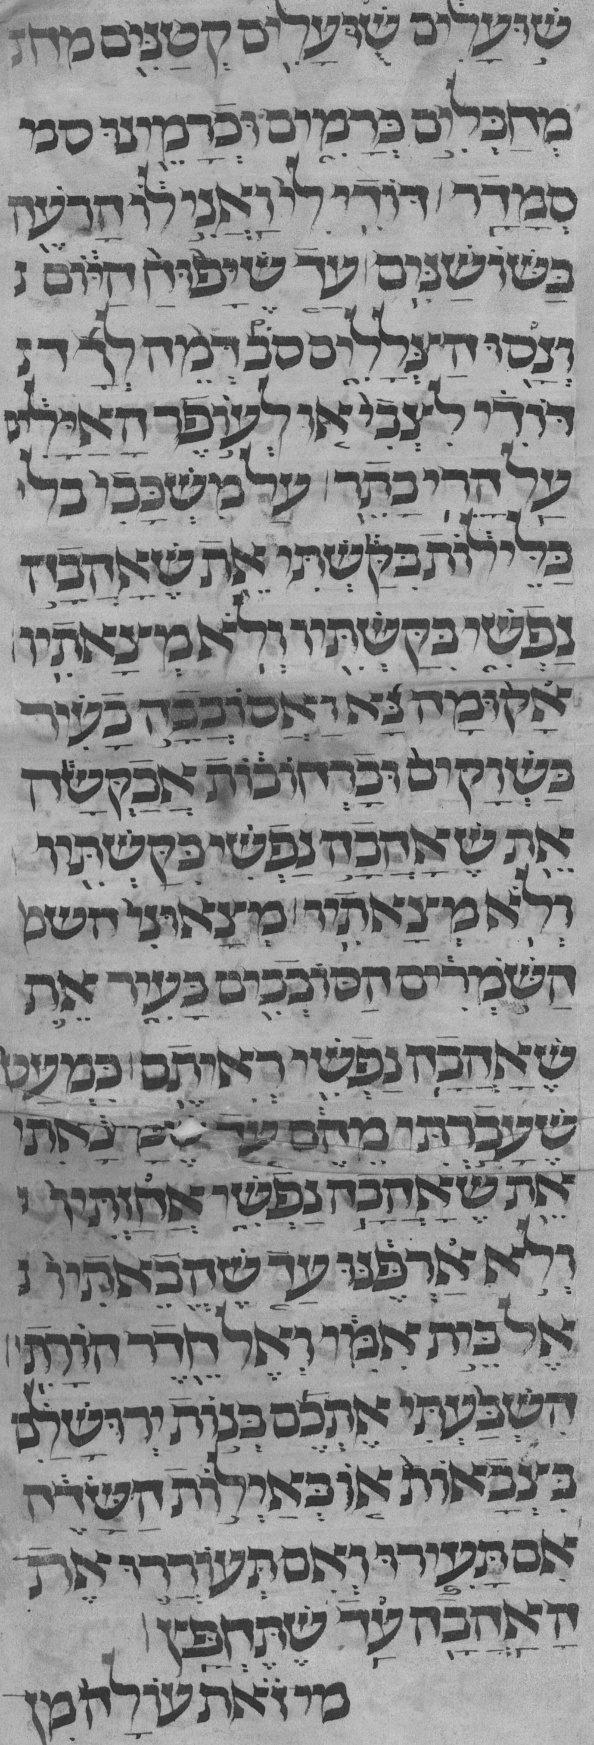 שׁוּעָלִים שׁוּעָלִים קְטַנִּים מחנ
מְחַבְּלִים כְּרָמִים וּכְרָמֵינוּ סמי
סְמָדַר דּוֹדִי לִי וַאֲנִי לוֹ הָרֹעֶה
בַּשּׁוֹשַׁנִּים עַד שֶׁיָּפוּחַ הַיּוֹם נ
וְנָסוּ הַצְּלָלִים סֹב דְּמֵה לְךָ דנ
דּוֹדִי לִצְבִי אוֹ לְעוֹפֶר הָאַיָּלִים
עַל הָרֵי בָתֶר עַל מִשְׁכָּבִי בלי
בַּלֵּילוֹת בִּקַּשְׁתִּי אֵת שֶׁאָהֲבָה
נַפְשִׁי בִּקַּשְׁתִּיו וְלֹא מְצָאתִיו
אָקוּמָה נָּא וַאֲסוֹבְבָה בָעִיר
בַּשְּׁוָקִים וּבָרְחוֹבוֹת אֲבַקְשָׁה
אֵת שֶׁאָהֲבָה נַפְשִׁי בִּקַּשְׁתִּיו
וְלֹא מְצָאתִיו מְצָאוּנִי השמ
הַשֹּׁמְרִים הַסּוֹבְבִים בָּעִיר אֵת
שֶׁאָהֲבָה נַפְשִׁי רְאִיתֶם כִּמְעַט
שֶׁעָבַרְתִּי מֵהֶם עַד מָצָאתִי
אֵת שֶׁאָהֲבָה נַפְשִׁי אֲחַזְתִּיו ו
וְלֹא אַרְפֶּנּוּ עַד שֶׁהֲבֵאתִיו נ
אֶל בֵּית אִמִּי וְאֶל חֶדֶר הוֹרָתִי
הִשְׁבַּעְתִּי אֶתְכֶם בְּנוֹת יְרוּשָׁלִַם
בִּצְבָאוֹת אוֹ בְּאַיְלוֹת הַשָּׂדֶה
אִם תָּעִירוּ וְאִם תְּעוֹרְרוּ אֶת
הָאַהֲבָה עַד שֶׁתֶּחְפָּץ
מִי זֹאת עוֹלָה מִן